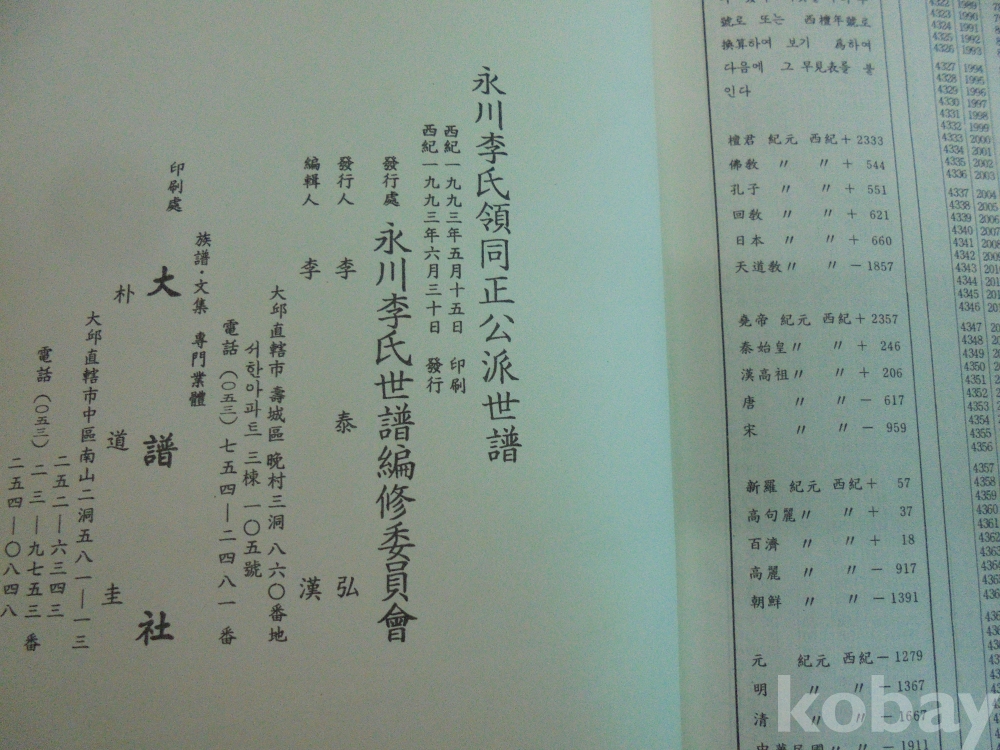 永川李氏領同正公派世譜
西紀一九九三年五月十五日 印刷
西紀一九九三年六月三十日 發行
發行處 永川李氏世譜編修委員會
發行人 李 泰 弘
編輯人 李 漢
大邱直轄市 壽城區 晚村三洞 八六〇番地
서한아파트 三棟 一〇五號
電話 (〇五三) 七五四—二四八一 番
族譜·文集 專門業體
印刷處 大 譜 社
朴 道 圭
大邱直轄市中區南山二洞五八一—一三
二五二—六三四三
電話 (〇五三) 二一三—九七五三 番
二五四—〇八四八
號로 또는 西檀年號로
換算하여 보기 爲하여
다음에 그 早見表를 붙
인다
檀君 紀元 西紀+2333
佛敎 〃 〃 + 544
孔子 〃 〃 + 551
回敎 〃 〃 + 621
日本 〃 〃 + 660
天道敎〃 〃 −1857
堯帝 紀元 西紀+2357
秦始皇〃 〃 + 246
漢高祖〃 〃 + 206
唐 〃 〃 − 617
宋 〃 〃 − 959
新羅 紀元 西紀+ 57
高句麗〃 〃 + 37
百濟 〃 〃 + 18
高麗 〃 〃 − 917
朝鮮 〃 〃 −1391
元 紀元 西紀−1279
明 〃 〃 −1367
清 〃 〃 −1667
中華民國〃 〃 −1911
4322 1989
4323 1990
4324 1991
4325 1992
4326 1993
4327 1994
4328 1995
4329 1996
4330 1997
4331 1998
4332 1999
4333 2000
4334 2001
4335 2002
4336 2003
4337 2004
4338 2005
4339 2006
4340 2007
4341 2008
4342 2009
4343
4344
4345
4346
4347
4348
4349
4350
4351
4352
4353
4354
4355
4356
4357
4358
4359
4360
4361
4362
kobay